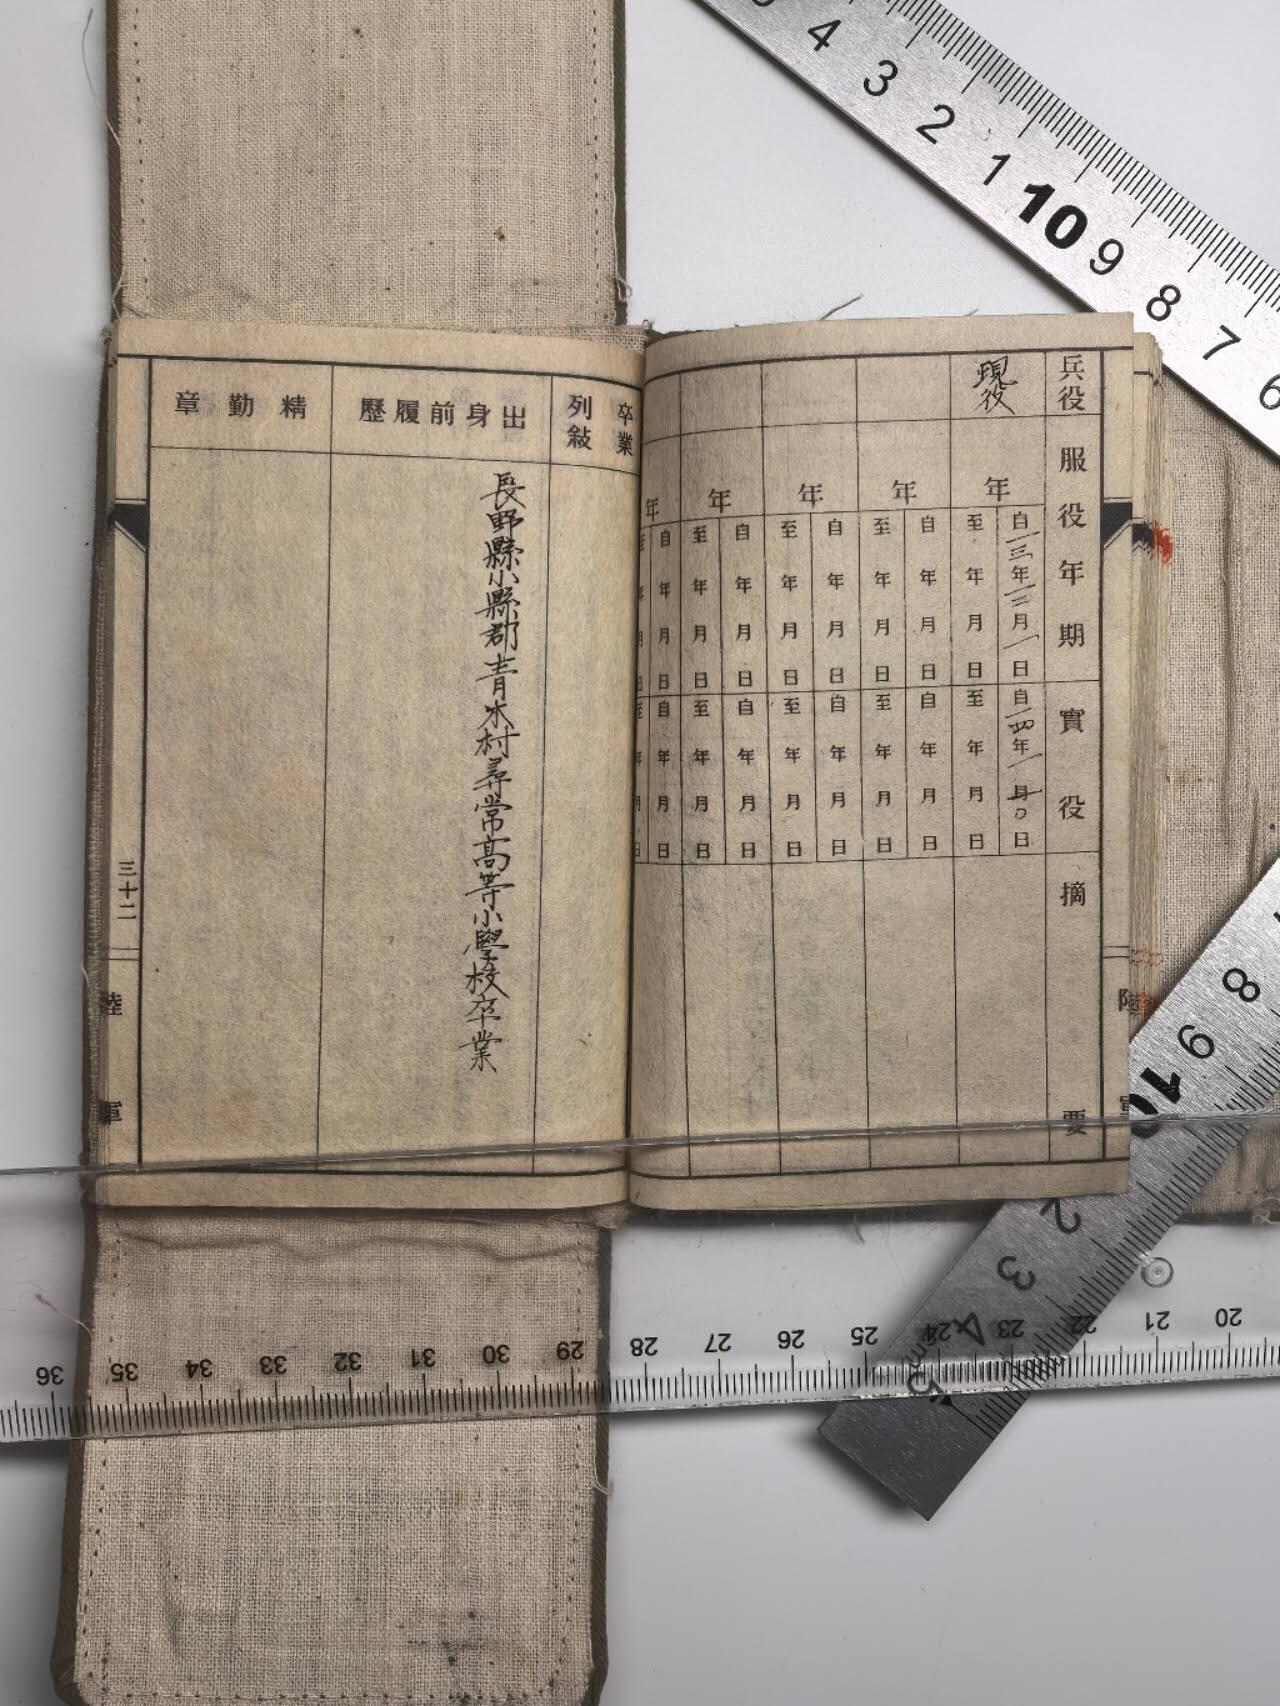 兵役
服役年期
實役
摘要
現役
年
自一三年一二月一日
至 年 月 日
自一四年一月〇日
至 年 月 日
年
自 年 月 日
至 年 月 日
自 年 月 日
至 年 月 日
年
自 年 月 日
至 年 月 日
自 年 月 日
至 年 月 日
年
自 年 月 日
至 年 月 日
自 年 月 日
至 年 月 日
年
自 年 月 日
至 年 月 日
自 年 月 日
至 年 月 日
卒業
列敍
出身前履歷
長野縣小縣郡青木村尋常高等小學校卒業
精勤章
三十二
陸軍
4 3 2 1 10 9 8 7 6
8 9 10
2 3 4 5
36 35 34 33 32 31 30 29 28 27 26 25 24 23 22 21 20